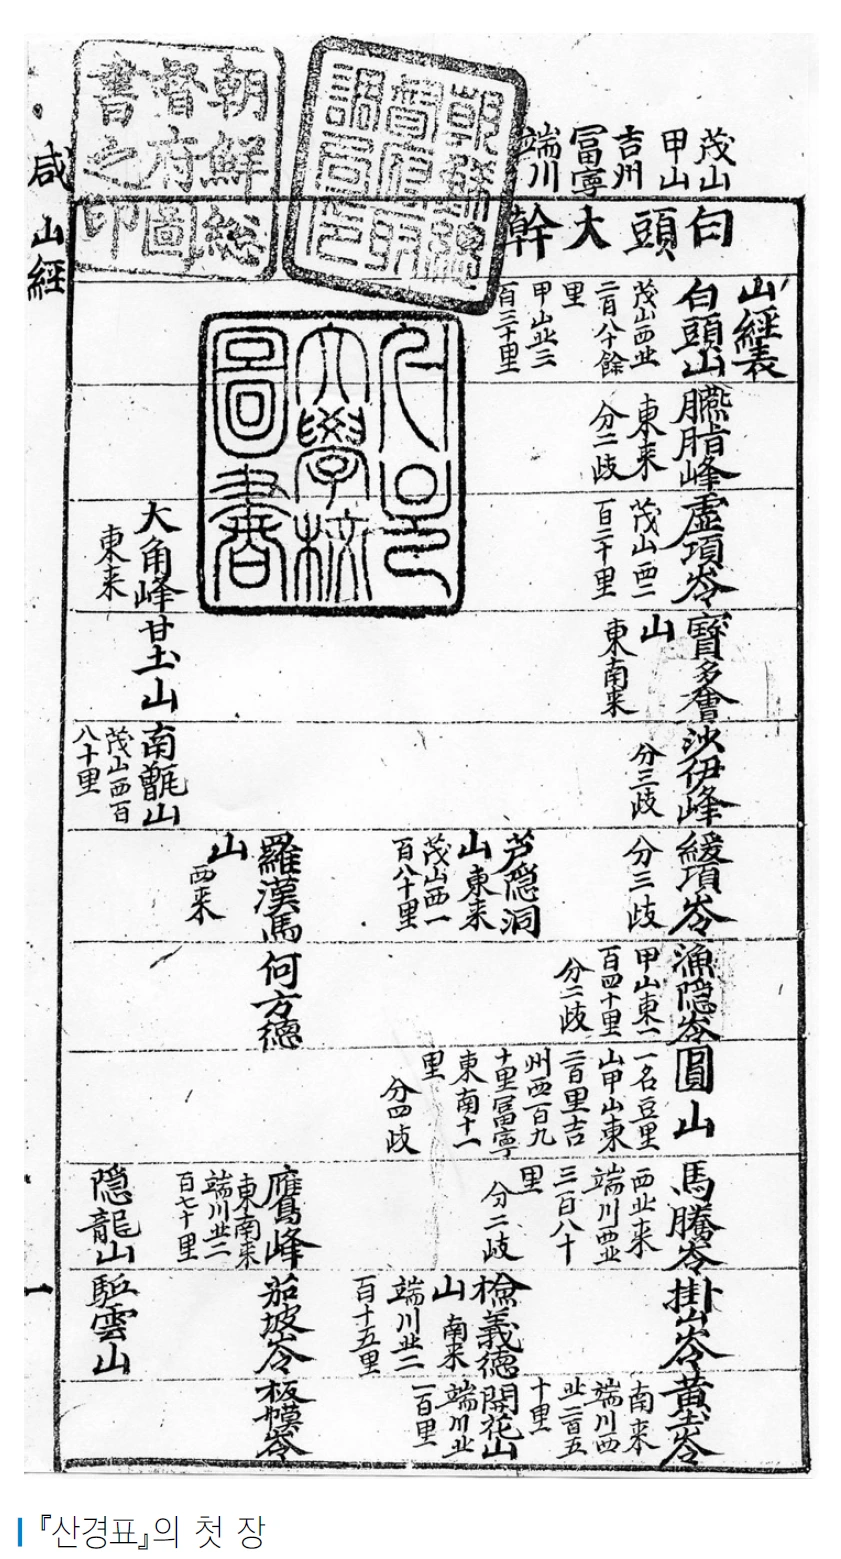 朝鮮総
督府圖
書之印
茂山
甲山
吉州
冨寧
端川
白頭大幹
山經表
白頭山
茂山西北
二百八十餘
里
甲山北三
百三十里
臙脂峰
東来
分二歧
虛項岺
茂山西二
百二十里
寶多會
山
東南来
沙伊峰
分三歧
緩項岺
分三歧
漁隠岺
甲山東一
百四十里
分二歧
圓山
一名豆里
山甲山東
二百里吉
州西一百九
十里冨寧
東南十一
里
分四歧
馬騰岺
西北来
端川西北
三百八十
里
分二歧
掛山岺
黃土岺
南来
端川西
北二百五
十里
芦隠洞
山
東来
茂山西一
百八十里
檢義德
山
南来
端川北二
百十五里
開花山
端川北
一百里
羅漢馬
山
西来
何方德
鷹峰
東南来
端川北二
百七十里
茄坡岺
板幙岺
大角峰
東来
甘土山
南甑山
茂山西百
八十里
隠龍山
駈雲山
大學校
圖書
咸
山經
一
『산경표』의 첫 장